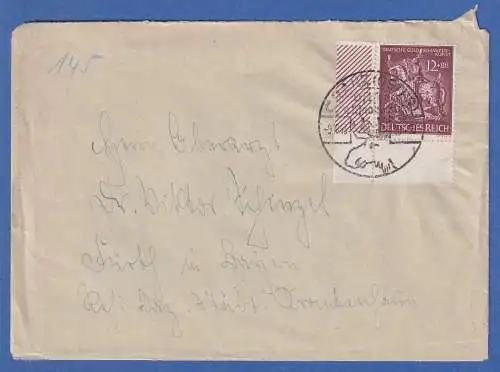 145
DEUTSCHE GOLDSCHMIEDE-
KUNST
12+88
DEUTSCHES REICH
Herrn Oberarzt
Dr. Viktor Schinzel
Fürth in Bayern
Res. Laz. Städt. Krankenhaus